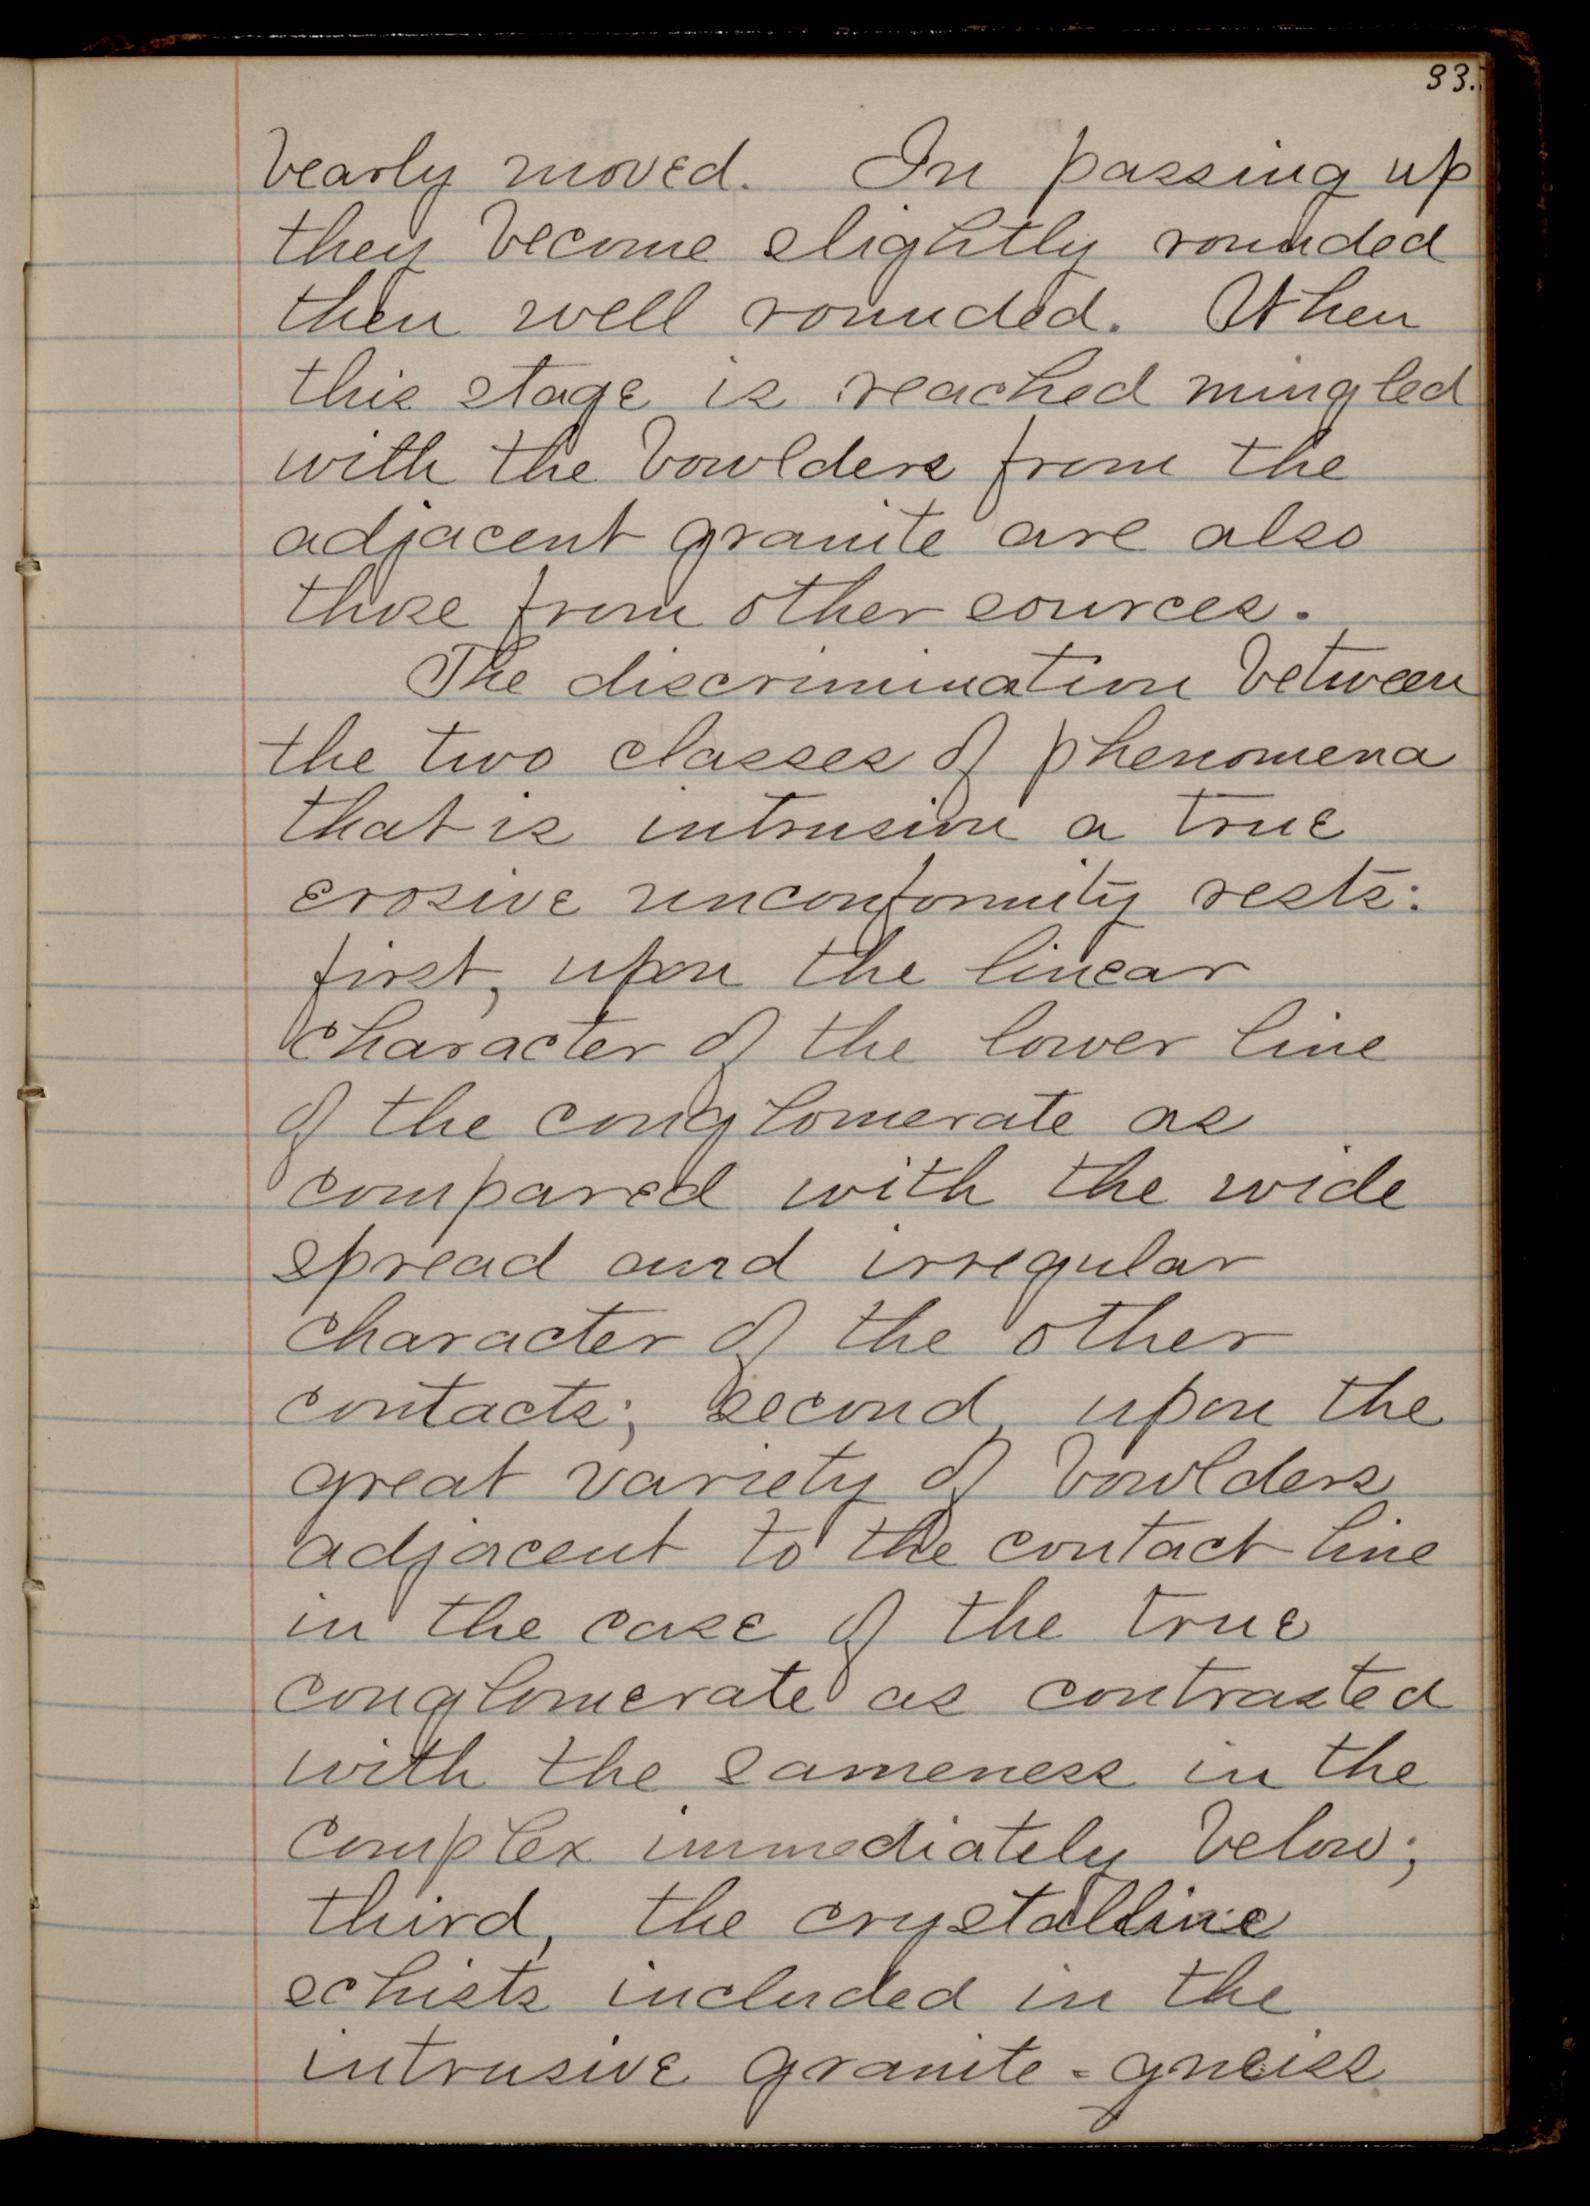 33.
bearly moved. In passing up
they become slightly rounded
then well rounded. When
this stage is reached mingled
with the bowlders from the
adjacent granite are also
those from other sources.
The discrimination between
the two classes of phenomena
that is intrusion a true
erosive unconformity rests:
first, upon the linear
character of the lower line
of the conglomerate as
compared with the wide
spread and irregular
character of the other
contacts; second, upon the
great variety of bowlders
adjacent to the contact line
in the case of the true
conglomerate as contrasted
with the sameness in the
complex immediately below;
third, the crystalline
schists included in the
intrusive granite-gneiss